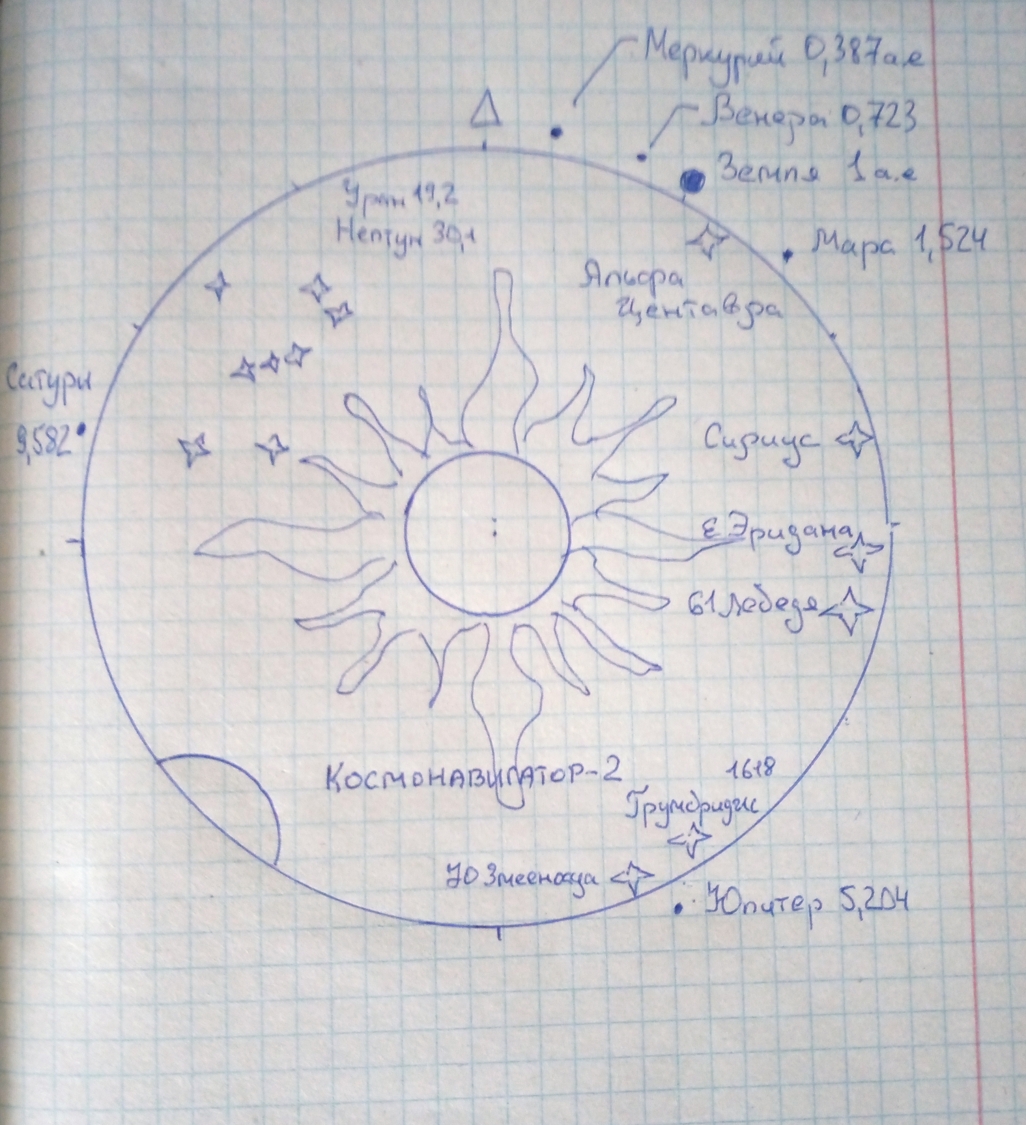 Меркурий 0,387 а.е
Венера 0,723
Земля 1 а.е
Уран 19,2
Нептун 30,1
Марс 1,524
Альфа
Центавра
Сатурн
9,582
Сириус
ε Эридана
61 Лебедя
КОСМОНАВИГАТОР-2
1618
Грумбридж
70 Змееносца
Юпитер 5,204